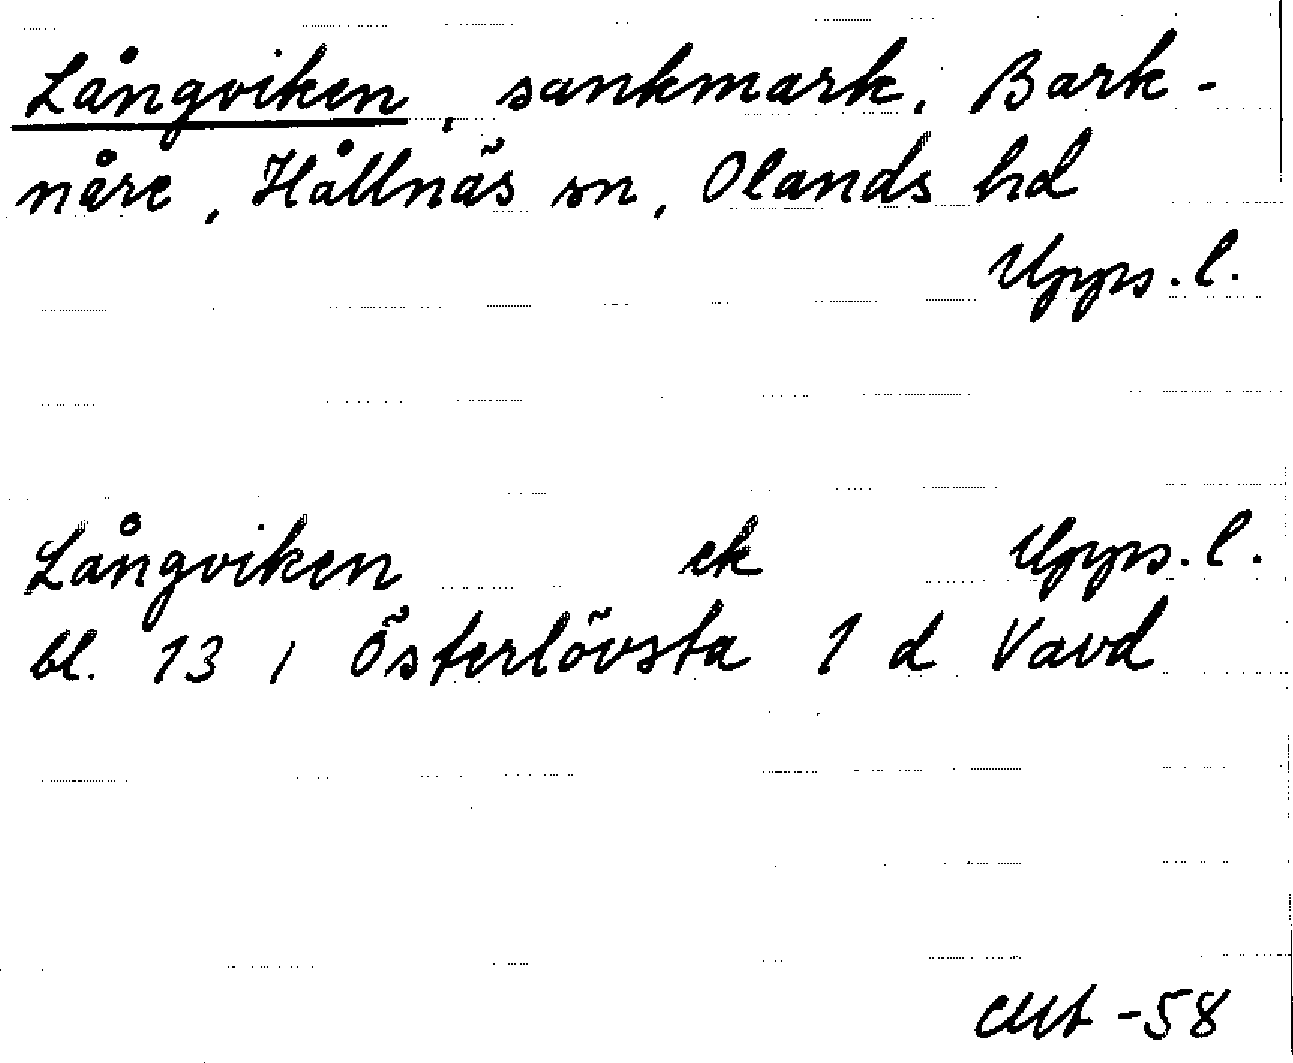 Långviken, sankmark, Bark-
nåre, Hållnäs sn, Olands hd
Upps. l.
Långviken ek Upps. l.
bl. 13 i Österlövsta 1 d Vavd
-58